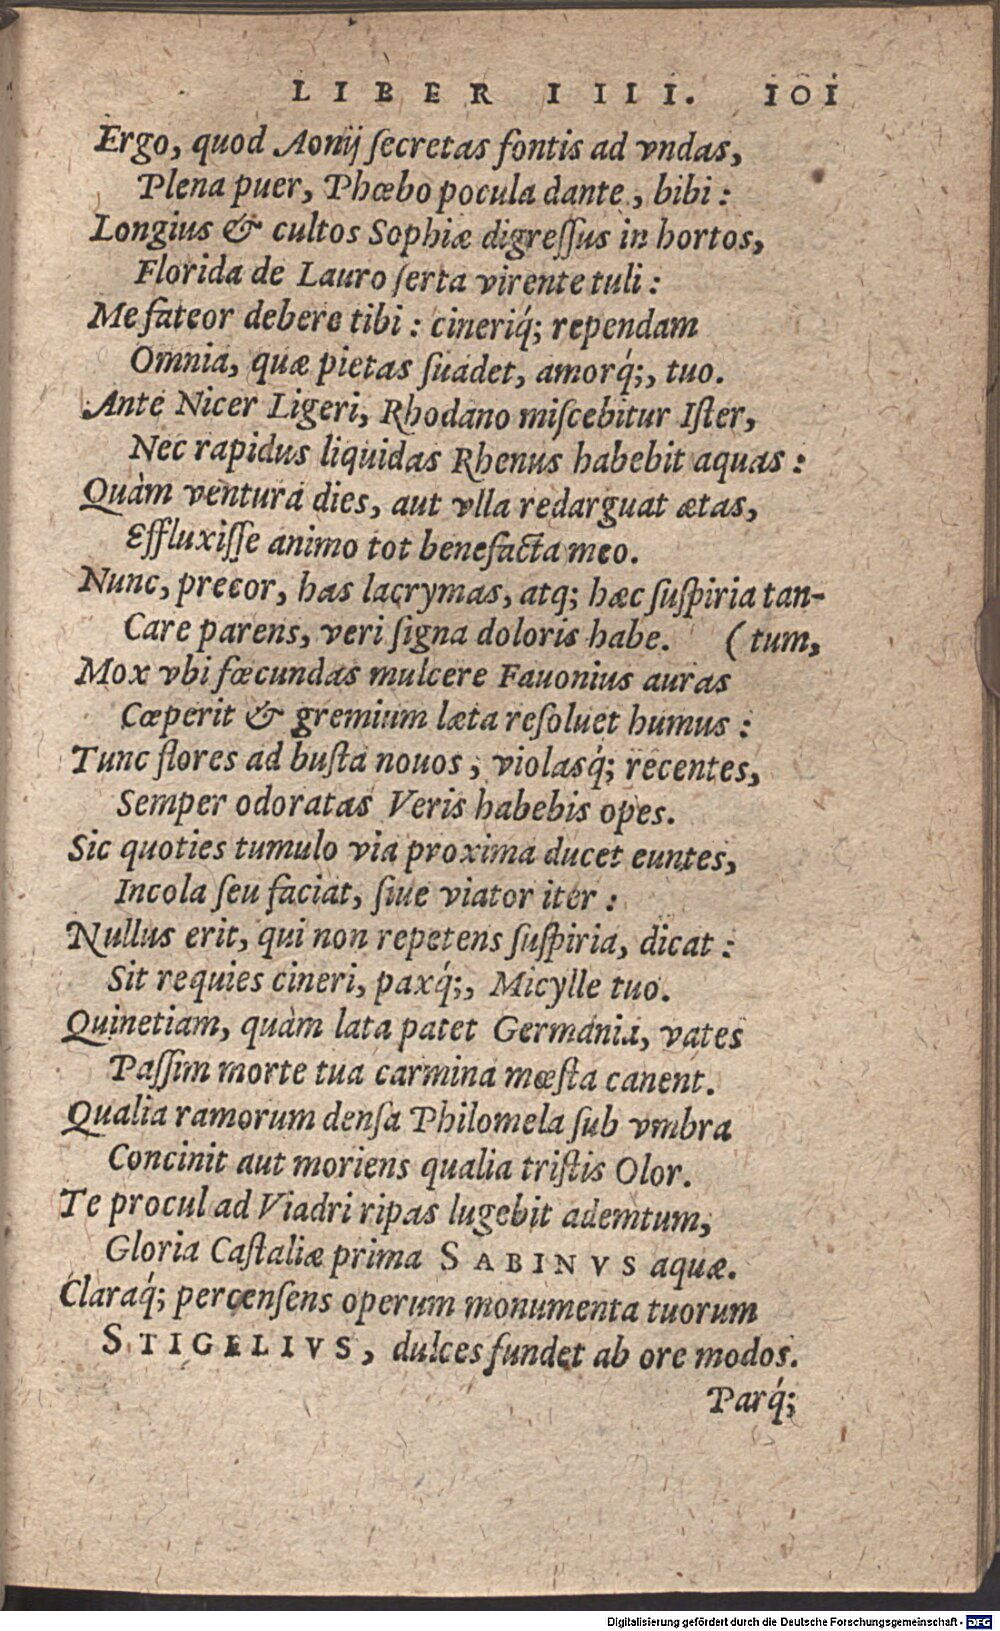 LIBER IIII. 101
Ergo, quod Aonij ſecretas fontis ad vndas,
Plena puer, Phœbo pocula dante, bibi:
Longius & cultos Sophiæ digreſſus in hortos,
Florida de Lauro ſerta virente tuli:
Me fateor debere tibi: cineriq́; rependam
Omnia, quæ pietas ſuadet, amorq́;, tuo.
Ante Nicer Ligeri, Rhodano miſcebitur Iſter,
Nec rapidus liquidas Rhenus habebit aquas:
Quàm ventura dies, aut vlla redarguat ætas,
Effluxiſſe animo tot benefacta meo.
Nunc, precor, has lacrymas, atq; hæc ſuſpiria tan-
Care parens, veri ſigna doloris habe. (tum,
Mox vbi fœcundas mulcere Fauonius auras
Cœperit & gremium læta reſoluet humus:
Tunc flores ad buſta nouos, violasq́; recentes,
Semper odoratas Veris habebis opes.
Sic quoties tumulo via proxima ducet euntes,
Incola ſeu faciat, ſiue viator iter:
Nullus erit, qui non repetens ſuſpiria, dicat:
Sit requies cineri, paxq́;, Micylle tuo.
Quinetiam, quàm lata patet Germania, vates
Paſſim morte tua carmina mœſta canent.
Qualia ramorum denſa Philomela ſub vmbra
Concinit aut moriens qualia triſtis Olor.
Te procul ad Viadri ripas lugebit ademtum,
Gloria Caſtaliæ prima SABINVS aquæ.
Claraq́; percenſens operum monumenta tuorum
STIGELIVS, dulces fundet ab ore modos.
Parq́;
Digitalisierung gefördert durch die Deutsche Forschungsgemeinschaft - DFG